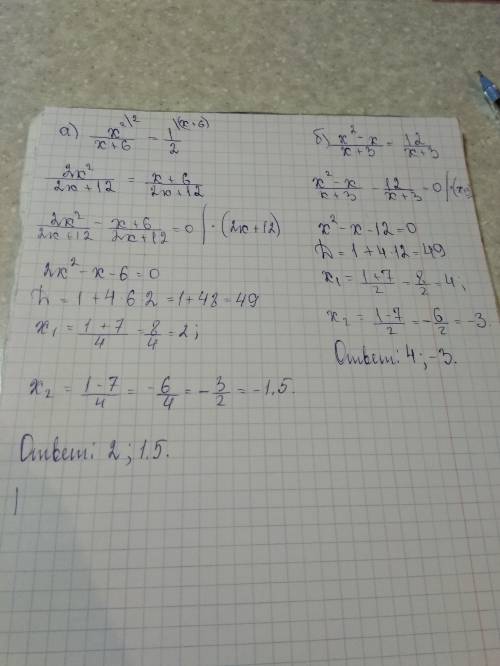 а) x²/(x+6) = 1/2 |² |(x+6)
2x²/(2x+12) = (x+6)/(2x+12)
2x²/(2x+12) - (x+6)/(2x+12) = 0 | · (2x+12)
2x² - x - 6 = 0
D = 1 + 4·6·2 = 1 + 48 = 49
x₁ = (1+7)/4 = 8/4 = 2;
x₂ = (1-7)/4 = -6/4 = -3/2 = -1.5.
Ответ: 2; 1.5.
б) (x² - x)/(x+3) = 12/(x+3)
(x² - x)/(x+3) - 12/(x+3) = 0 | ·(x+3
x² - x - 12 = 0
D = 1 + 4·12 = 49
x₁ = (1+7)/2 = 8/2 = 4;
x₂ = (1-7)/2 = -6/2 = -3
Ответ: 4; -3.